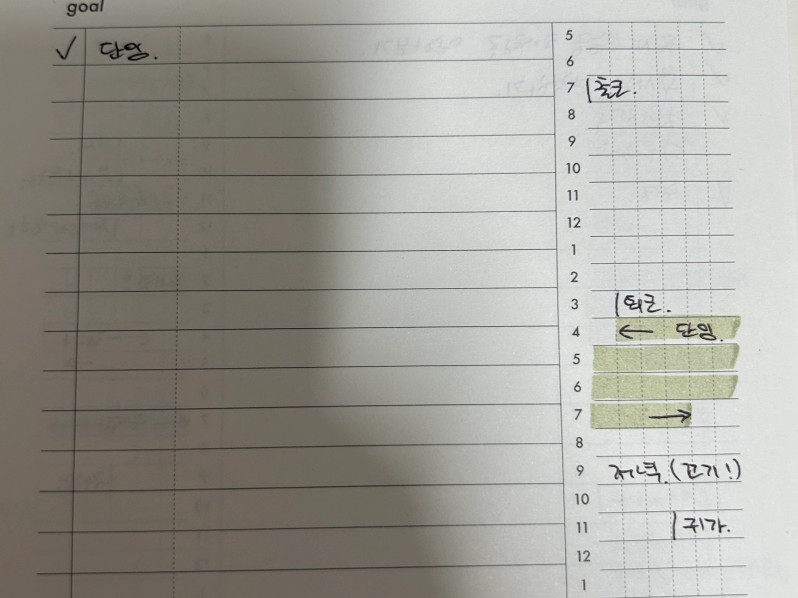 goal
✓ 단잉.
5
6
7 출근.
8
9
10
11
12
1
2
3 퇴근.
4 ← 단잉.
5
6
7 →
8
9 저녁. (고기!)
10
11 귀가.
12
1